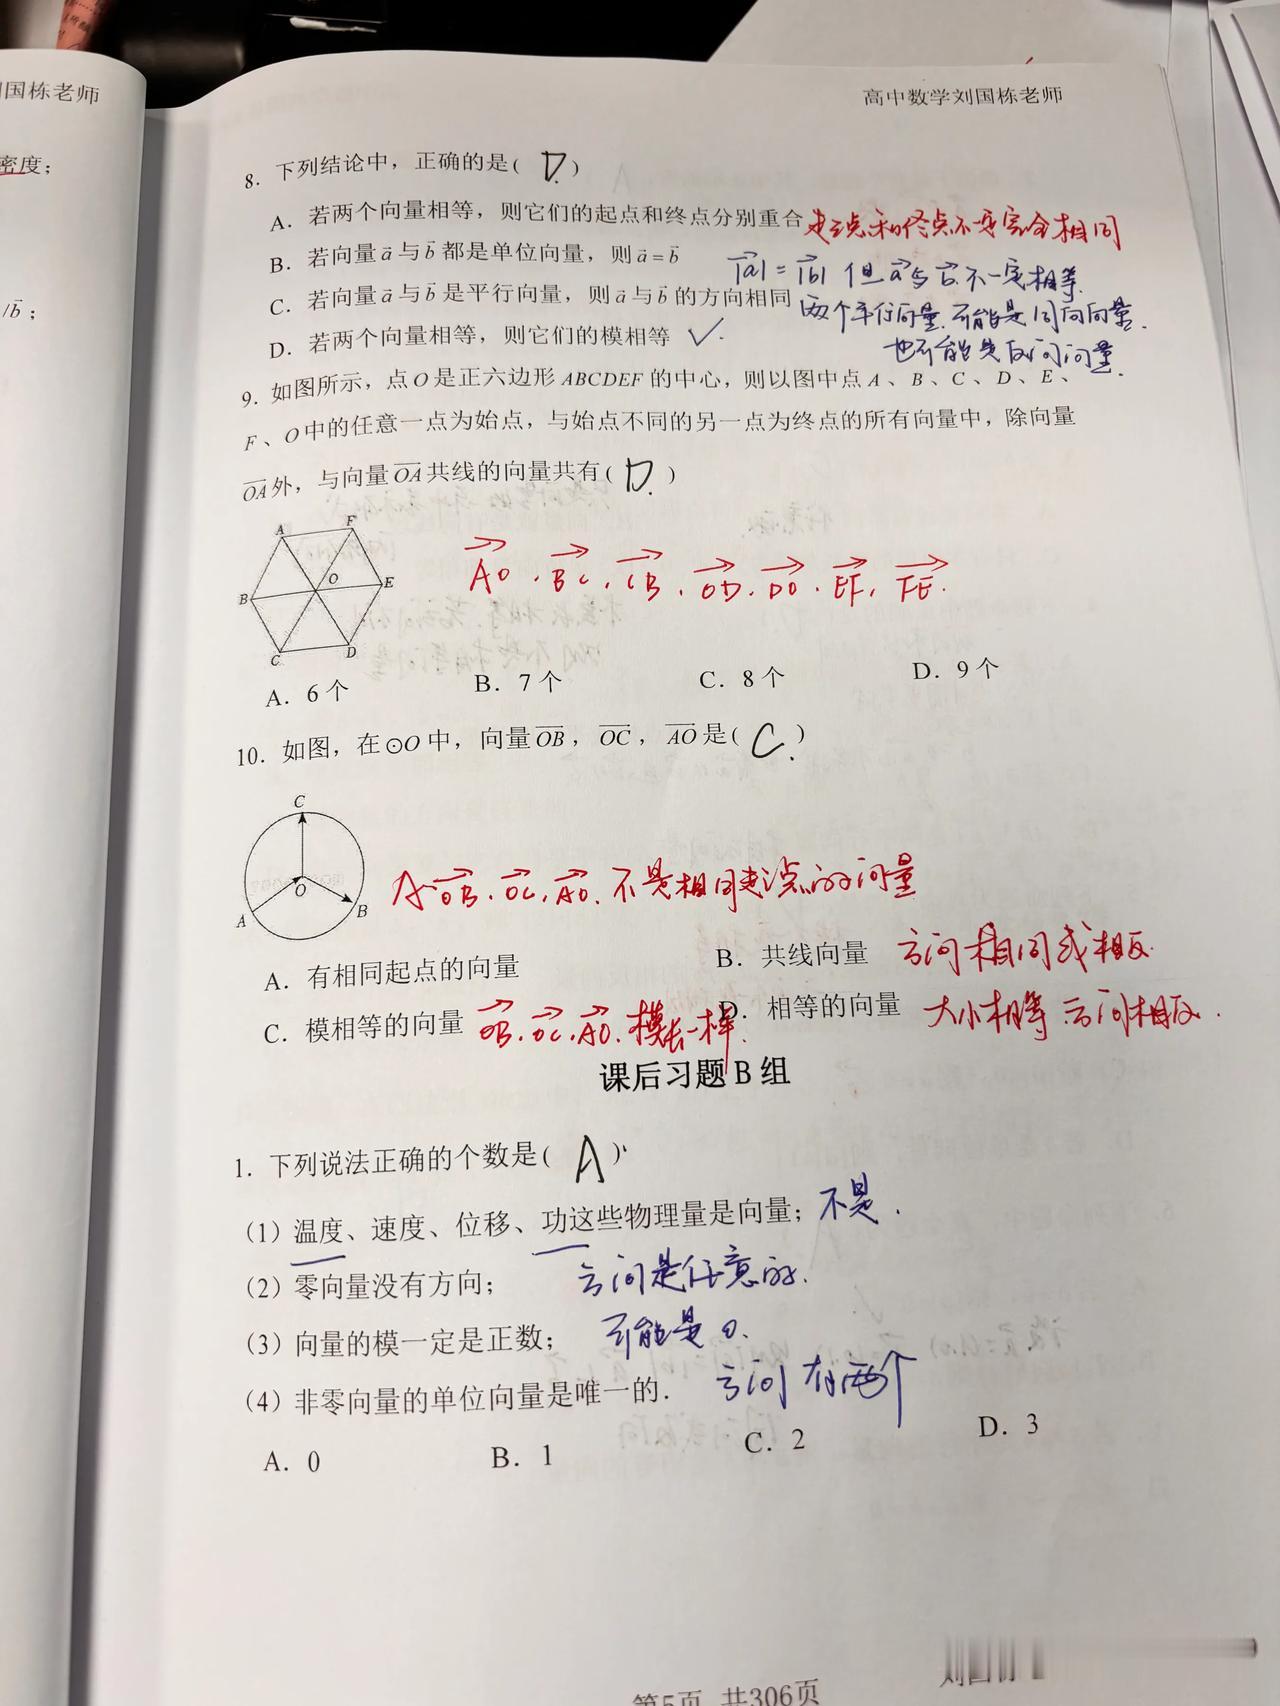 刘国栋老师
高中数学刘国栋老师
密度；
/b̄；
8. 下列结论中，正确的是( D. )
A. 若两个向量相等，则它们的起点和终点分别重合 起点和终点不一定完全相同
B. 若向量ā与b̄都是单位向量，则ā=b̄ |a⃗|=|b⃗| 但a⃗与b⃗不一定相等.
C. 若向量ā与b̄是平行向量，则ā与b̄的方向相同 两个平行向量.可能是同向向量.
D. 若两个向量相等，则它们的模相等 ✓. 也可能是反向向量.
9. 如图所示，点O是正六边形ABCDEF的中心，则以图中点A、B、C、D、E、
F、O中的任意一点为始点，与始点不同的另一点为终点的所有向量中，除向量
OA外，与向量OA共线的向量共有( D. )
A F
O
B E
C D
AO. BC. CB. OD. DO. EF. FE.
A. 6个 B. 7个 C. 8个 D. 9个
10. 如图，在⊙O中，向量OB，OC，AO是( C. )
C
O
A B
A OB. OC. AO. 不是相同起点的向量
A. 有相同起点的向量 B. 共线向量 方向相同或相反.
C. 模相等的向量 OB. OC. AO. 模长一样. D. 相等的向量 大小相等 方向相反.
课后习题B组
1. 下列说法正确的个数是( A )
(1) 温度、速度、位移、功这些物理量是向量; 不是.
(2) 零向量没有方向; 方向是任意的.
(3) 向量的模一定是正数; 可能是0.
(4) 非零向量的单位向量是唯一的. 方向有两个
A. 0 B. 1 C. 2 D. 3
第5页 共306页